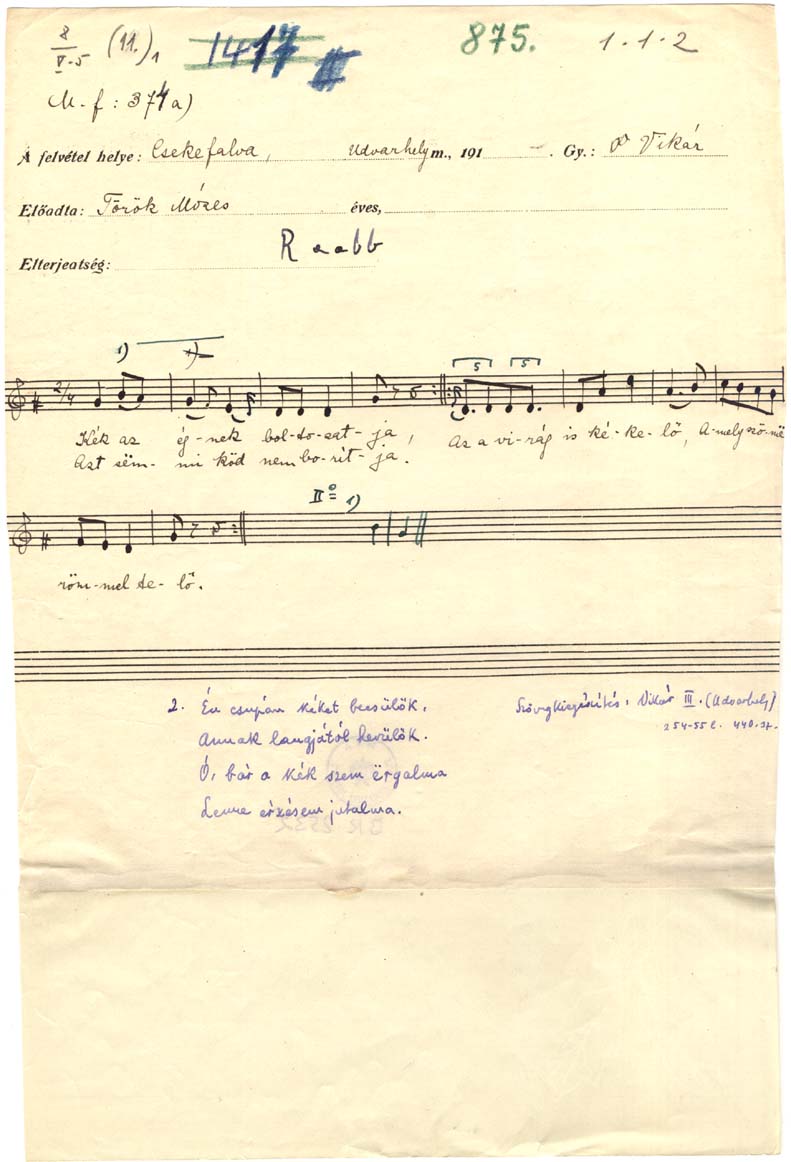 8
V-5 (11.)1 1417 875. 1.1.2
M.f: 374a)
A felvétel helye: Csekefalva, Udvarhely m., 191 —. Gy.: Vikár
Előadta: Török Mózes éves,
Elterjedtség: Raabb
1)
2/4 5 5
Kék az ég-nek bol-to-zat-ja, Az a vi-rág is ké-ke-lő, A-mely szö-mé
Azt sëm-mi köd nem bo-rít-ja.
II° = 1)
röm-mel te-lő.
2. Én csupán kéket becsülök,
Annak langjától hevülök.
Ó, bár a kék szem ërgalma
Lenne érzésem jutalma.
Szövegkiegészítés: Vikár III. (Udvarhely)
254-55 l. 440.sz.